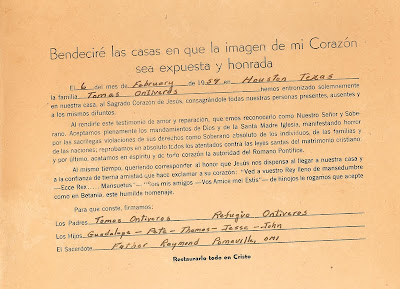 Bendeciré las casas en que la imagen de mi Corazón
sea expuesta y honrada
El 6 del mes de February de 1959 en Houston Texas
la familia Tomas Ontiveros hemos entronizado solemnemente
en nuestra casa, al Sagrado Corazón de Jesús, consagrándole todas nuestras personas, presentes, ausentes y
a los mismos difuntos.
Al rendirle este testimonio de amor y reparación, que emos reconocerlo como Nuestro Señor y Sobe-
rano. Aceptamos plenamente los mandamientos de Dios y de la Santa Madre Iglesia, manifestando horror
por las sacrílegas violaciones de sus derechos como Soberano absoluto de los individuos, de las familias y
de las naciones, reprobamos en absoluto todos los atentados contra las leyes santas del matrimonio cristiano
y por último, acatamos en espíritu y de todo corazón la autoridad del Romano Pontífice.
Al mismo tiempo, queriendo corresponder al honor que Jesús nos dispensa al llegar a nuestra casa y
a la confianza de tierna amistad que hace exclamar a su corazón: "Ved a vuestro Rey lleno de mansedumbre
—Ecce Rex..... Mansuetus"— "Sois mis amigos —Vos Amice mei Estis"— de hinojos le rogamos que acepte
como en Betania, este humilde homenaje.
Para que conste, firmamos:
Los Padres Tomas Ontiveros Refugio Ontiveros
Los Hijos Guadalupe - Pete - Thomas - Jesse - John
El Sacerdote Father Raymond Pomeville, OMI
Restaurarlo todo en Cristo